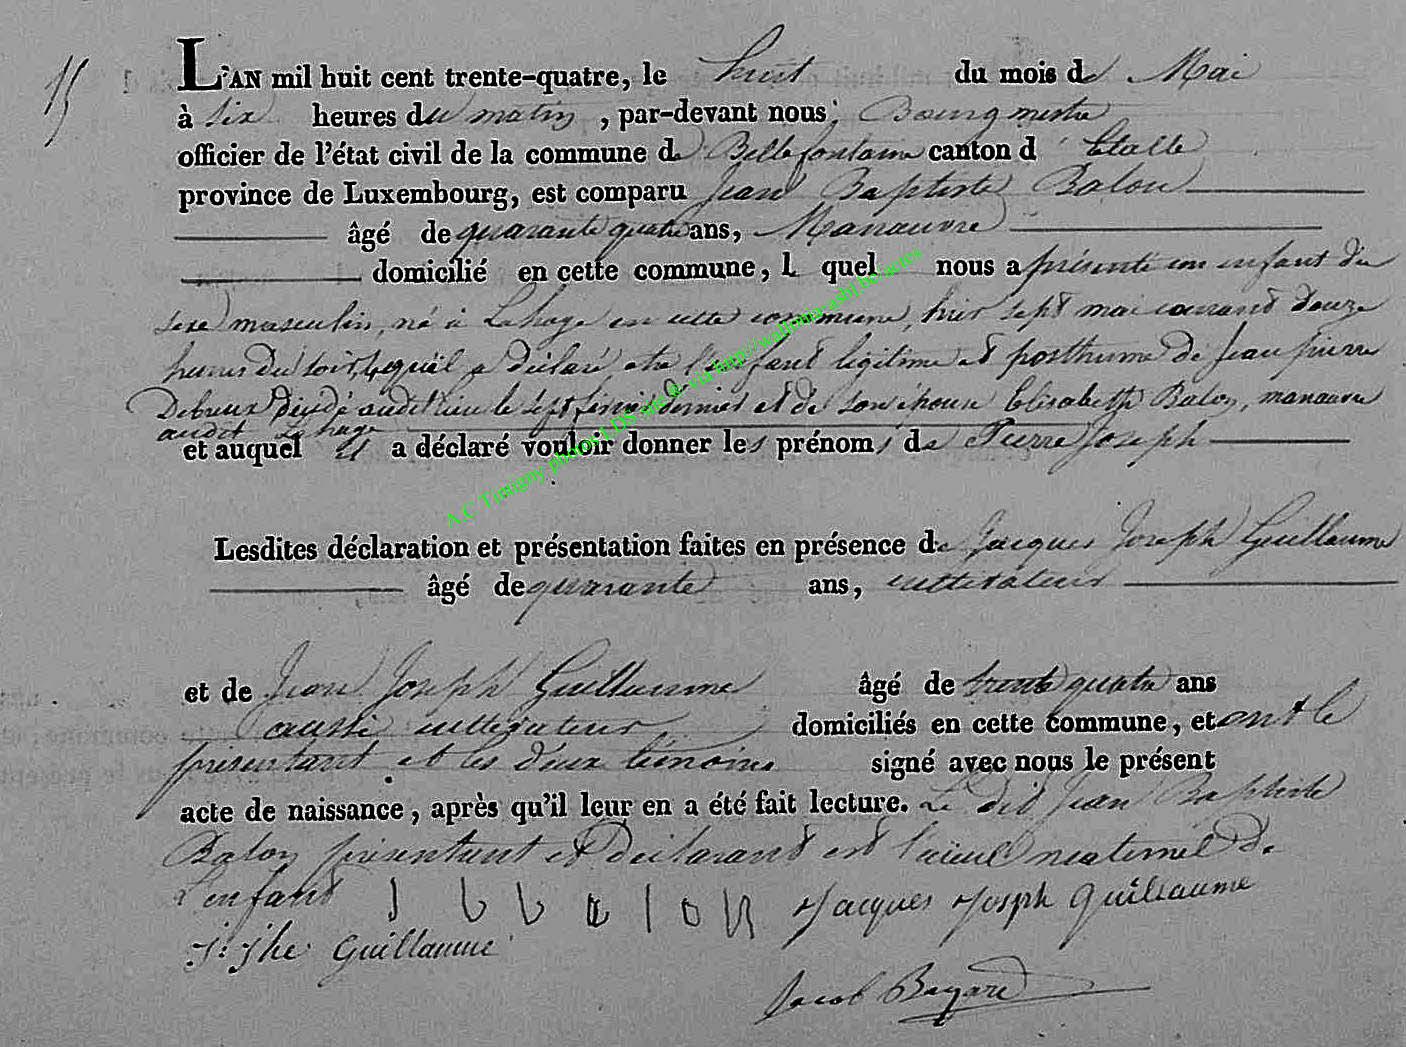 15
L'AN mil huit cent trente-quatre, le huit du mois de Mai
à six heures du matin, par-devant nous Bourgmestre
officier de l'état civil de la commune de Bellefontaine canton d'Etalle
province de Luxembourg, est comparu Jean Baptiste Balon
âgé de quarante quatre ans, Manœuvre
domicilié en cette commune, l quel nous a présenté un enfant du
sexe masculin, né à Lahage en cette commune, hier sept mai courant douze
heures du soir, lequel a déclaré être l'enfant légitime et posthume de Jean pierre
Debreux décédé audit lieu le sept février dernier et de son épouse Elisabeth Balon, manœuvre
audit Lahage
et auquel il a déclaré vouloir donner les prénoms de Pierre Joseph
Lesdites déclaration et présentation faites en présence de Jacques Joseph Guillaume
âgé de quarante ans, cultivateur
et de Jean Joseph Guillaume âgé de trente quatre ans
aussi cultivateur domiciliés en cette commune, et ont le
présentant et les deux témoins signé avec nous le présent
acte de naissance, après qu'il leur en a été fait lecture. Le dit Jean Baptiste
Balon présentant et déclarant est l'aieul maternel de
L'enfant J b b a l o n Jacques Josph Guillaume
J: Jhe Guillaume
Jacob Bayard
A.C Tintigny photos LDS via http://wallonia-asbl.be/actes